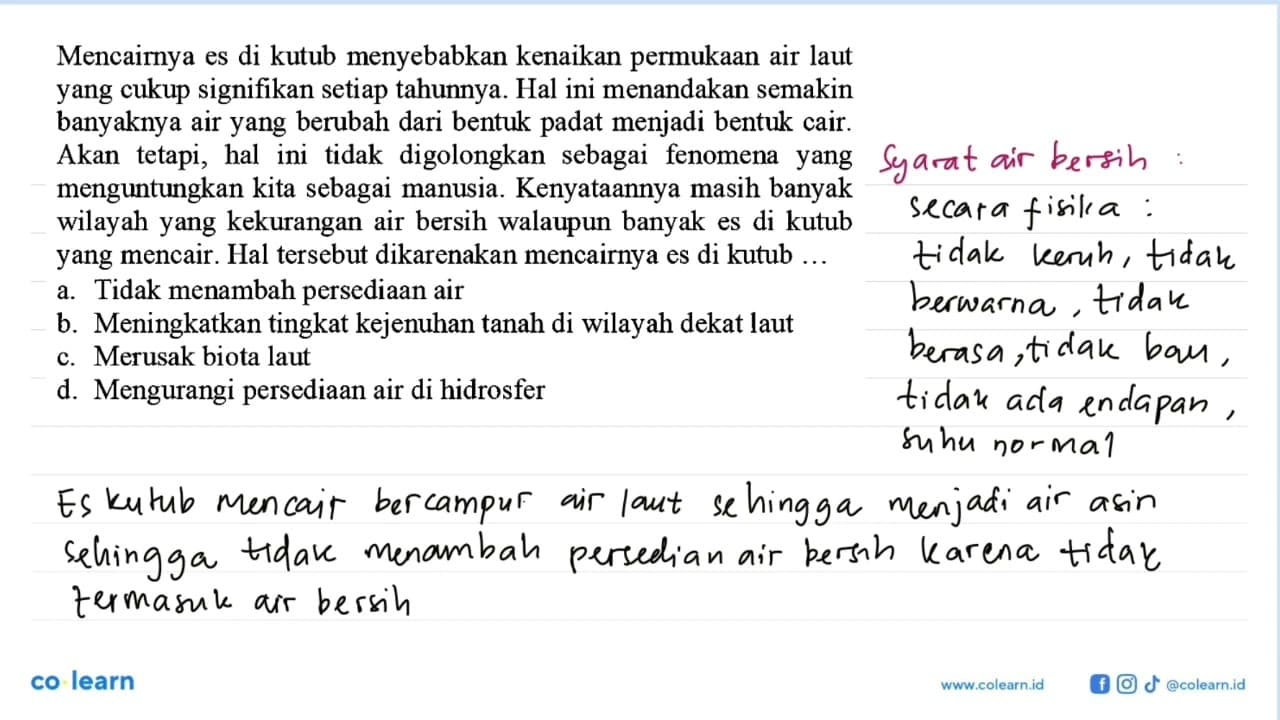 Mencairnya es di kutub menyebabkan kenaikan permukaan air laut
yang cukup signifikan setiap tahunnya. Hal ini menandakan semakin
banyaknya air yang berubah dari bentuk padat menjadi bentuk cair.
Akan tetapi, hal ini tidak digolongkan sebagai fenomena yang
menguntungkan kita sebagai manusia. Kenyataannya masih banyak
wilayah yang kekurangan air bersih walaupun banyak es di kutub
yang mencair. Hal tersebut dikarenakan mencairnya es di kutub ...
a. Tidak menambah persediaan air
b. Meningkatkan tingkat kejenuhan tanah di wilayah dekat laut
c. Merusak biota laut
d. Mengurangi persediaan air di hidrosfer
Syarat air bersih :
secara fisika :
tidak keruh, tidak
berwarna, tidak
berasa, tidak bau,
tidak ada endapan,
suhu normal
Es kutub mencair bercampur air laut sehingga menjadi air asin
sehingga tidak menambah persedian air bersih karena tidak
termasuk air bersih
co learn
www.colearn.id
@colearn.id